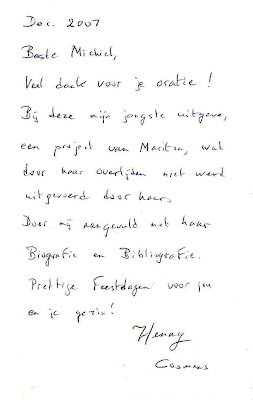 Dec. 2007
Beste Michiel,
Veel dank voor je oratie!
Bij deze mijn jongste uitgave,
een project van Maritza, wat
door haar overlijden niet werd
uitgevoerd door haar.
Door mij aangevuld met haar
Biografie en Bibliografie.
Prettige Feestdagen voor jou
en je gezin!
Henny
Coomans